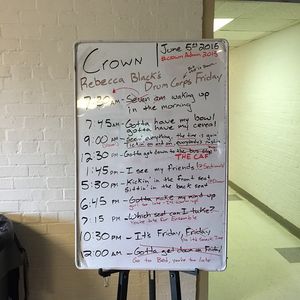 Crown
June 5th 2015
Rebecca Black's Drum Corps Friday
AM - Seven am waking up
in the morning
7:45 AM - Gotta have my bowl
gotta have my cereal
9:00 AM - Seein' everything, the time is goin'
tickin' on and on everybody's rushin'
12:30 PM - Gotta get down to the bus stop
THE CAF
1:45 PM - I see my friends!
5:30 PM - Kickin' in the front seat
Sittin' in the back seat
6:45 PM - Gotta make my mind up
7:15 PM - Which seat can I take?
10:30 PM - It's Friday, Friday
2:00 AM - Gotta get down on Friday!
Go to Bed, you're too late